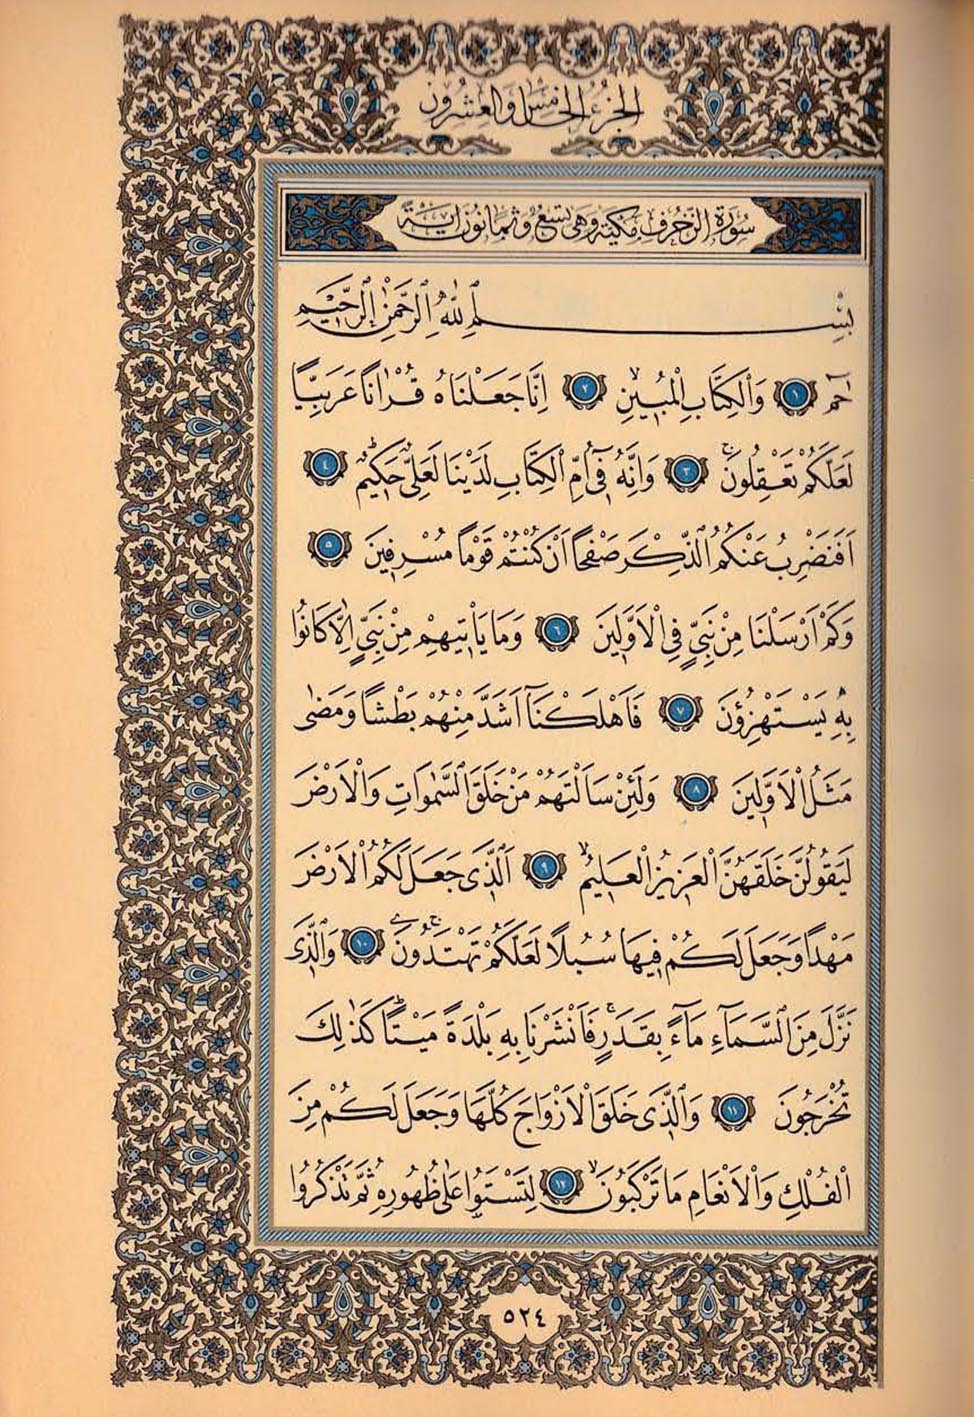 الجزء الخامس والعشرون
سُورَةُ الزُّخْرُفِ مَكِّيَّةٌ وَهِىَ تِسْعٌ وَثَمَانُونَ اٰيَةً
بِسْمِ ٱللّٰهِ ٱلرَّحْمٰنِ ٱلرَّحِيمِ
حٰمٓ ١ وَالْكِتَابِ الْمُبِينِۙ ٢ اِنَّا جَعَلْنَاهُ قُرْاٰنًا عَرَبِيًّا
لَعَلَّكُمْ تَعْقِلُونَۚ ٣ وَاِنَّهُ فٓى اُمِّ الْكِتَابِ لَدَيْنَا لَعَلِىٌّ حَكِيمٌۜ ٤
اَفَنَضْرِبُ عَنْكُمُ الذِّكْرَ صَفْحًا اَنْ كُنْتُمْ قَوْمًا مُسْرِفِينَ ٥
وَكَمْ اَرْسَلْنَا مِنْ نَبِىٍّ فِى الْاَوَّلِينَ ٦ وَمَا يَأْتِيهِمْ مِنْ نَبِىٍّ اِلَّا كَانُوا
بِهٖ يَسْتَهْزِؤُنَ ٧ فَاَهْلَكْنَٓا اَشَدَّ مِنْهُمْ بَطْشًا وَمَضٰى
مَثَلُ الْاَوَّلِينَ ٨ وَلَئِنْ سَاَلْتَهُمْ مَنْ خَلَقَ السَّمٰوَاتِ وَالْاَرْضَ
لَيَقُولُنَّ خَلَقَهُنَّ الْعَزِيزُ الْعَلِيمُۙ ٩ اَلَّذِى جَعَلَ لَكُمُ الْاَرْضَ
مَهْدًا وَجَعَلَ لَكُمْ فِيهَا سُبُلًا لَعَلَّكُمْ تَهْتَدُونَۚ ١٠ وَالَّذِى
نَزَّلَ مِنَ السَّمَٓاءِ مَٓاءً بِقَدَرٍۚ فَاَنْشَرْنَا بِهٖ بَلْدَةً مَيْتًاۜ كَذٰلِكَ
تُخْرَجُونَ ١١ وَالَّذِى خَلَقَ الْاَزْوَاجَ كُلَّهَا وَجَعَلَ لَكُمْ مِنَ
الْفُلْكِ وَالْاَنْعَامِ مَا تَرْكَبُونَۙ ١٢ لِتَسْتَوُٗا عَلٰى ظُهُورِهٖ ثُمَّ تَذْكُرُوا
٥٢٤